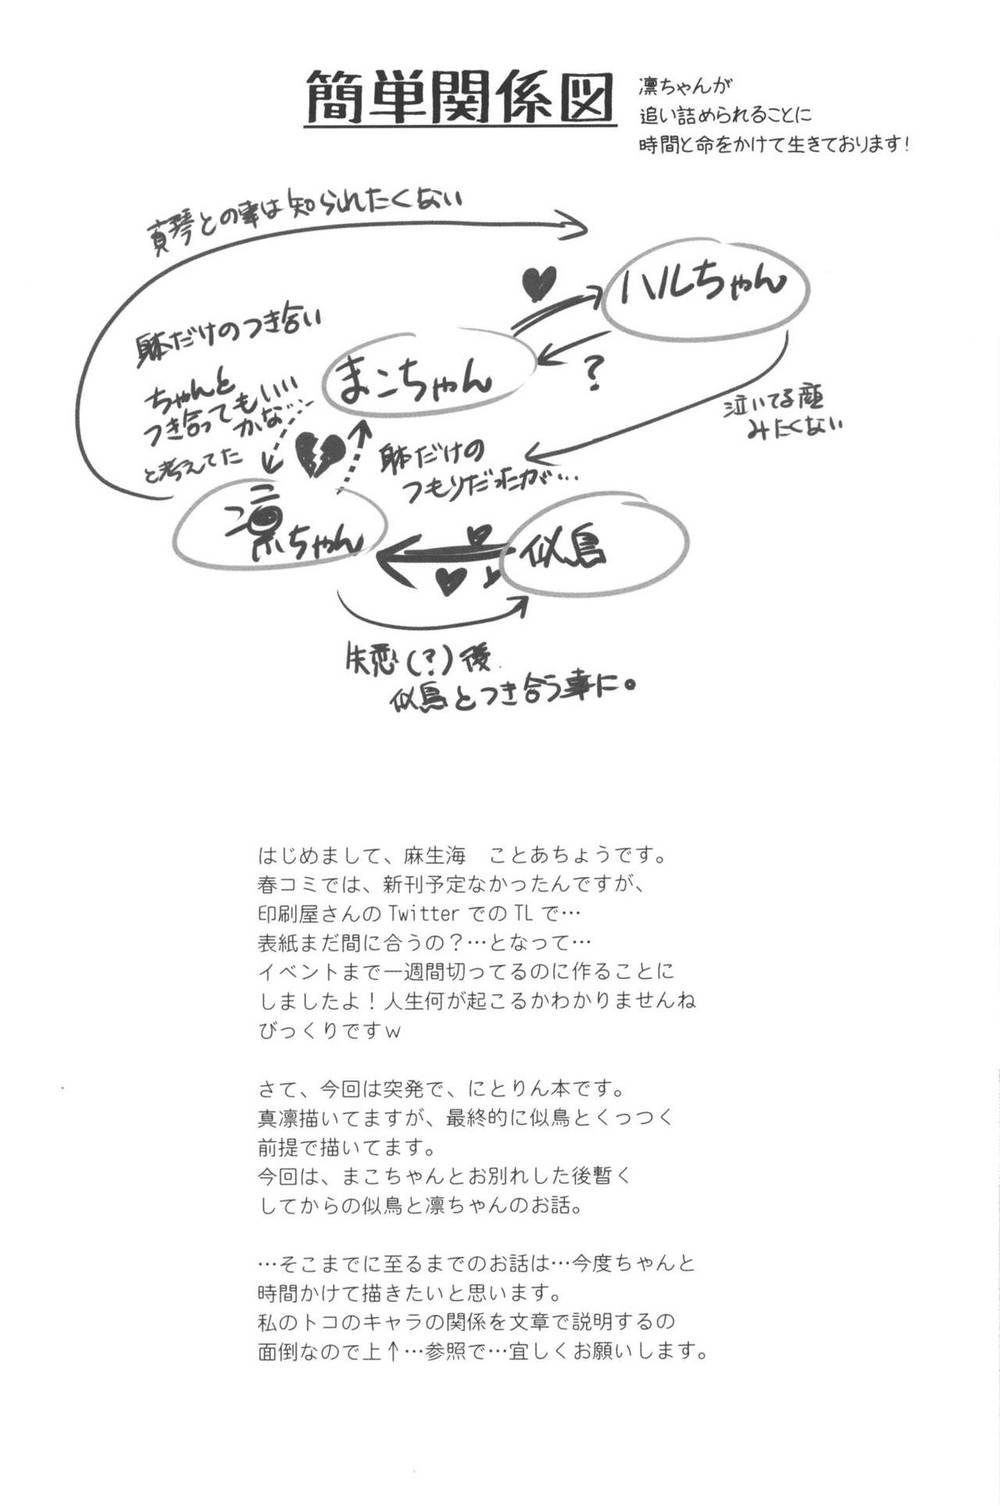 簡単関係図
凛ちゃんが
追い詰められることに
時間と命をかけて生きております!
真琴との事は知られたくない
ハルちゃん
躰だけのつき合い
まこちゃん
?
ちゃんと
つき合ってもいい
かな…
と考えてた
泣いてる顔
みたくない
躰だけの
つもりだったが…
凛ちゃん
似鳥
失恋(?)後
似鳥とつき合う事に。
はじめまして、麻生海　ことあちょうです。
春コミでは、新刊予定なかったんですが、
印刷屋さんのTwitterでのTLで…
表紙まだ間に合うの?…となって…
イベントまで一週間切ってるのに作ることに
しましたよ!人生何が起こるかわかりませんね
びっくりですｗ
さて、今回は突発で、にとりん本です。
真凛描いてますが、最終的に似鳥とくっつく
前提で描いてます。
今回は、まこちゃんとお別れした後暫く
してからの似鳥と凛ちゃんのお話。
…そこまでに至るまでのお話は…今度ちゃんと
時間かけて描きたいと思います。
私のトコのキャラの関係を文章で説明するの
面倒なので上↑…参照で…宜しくお願いします。